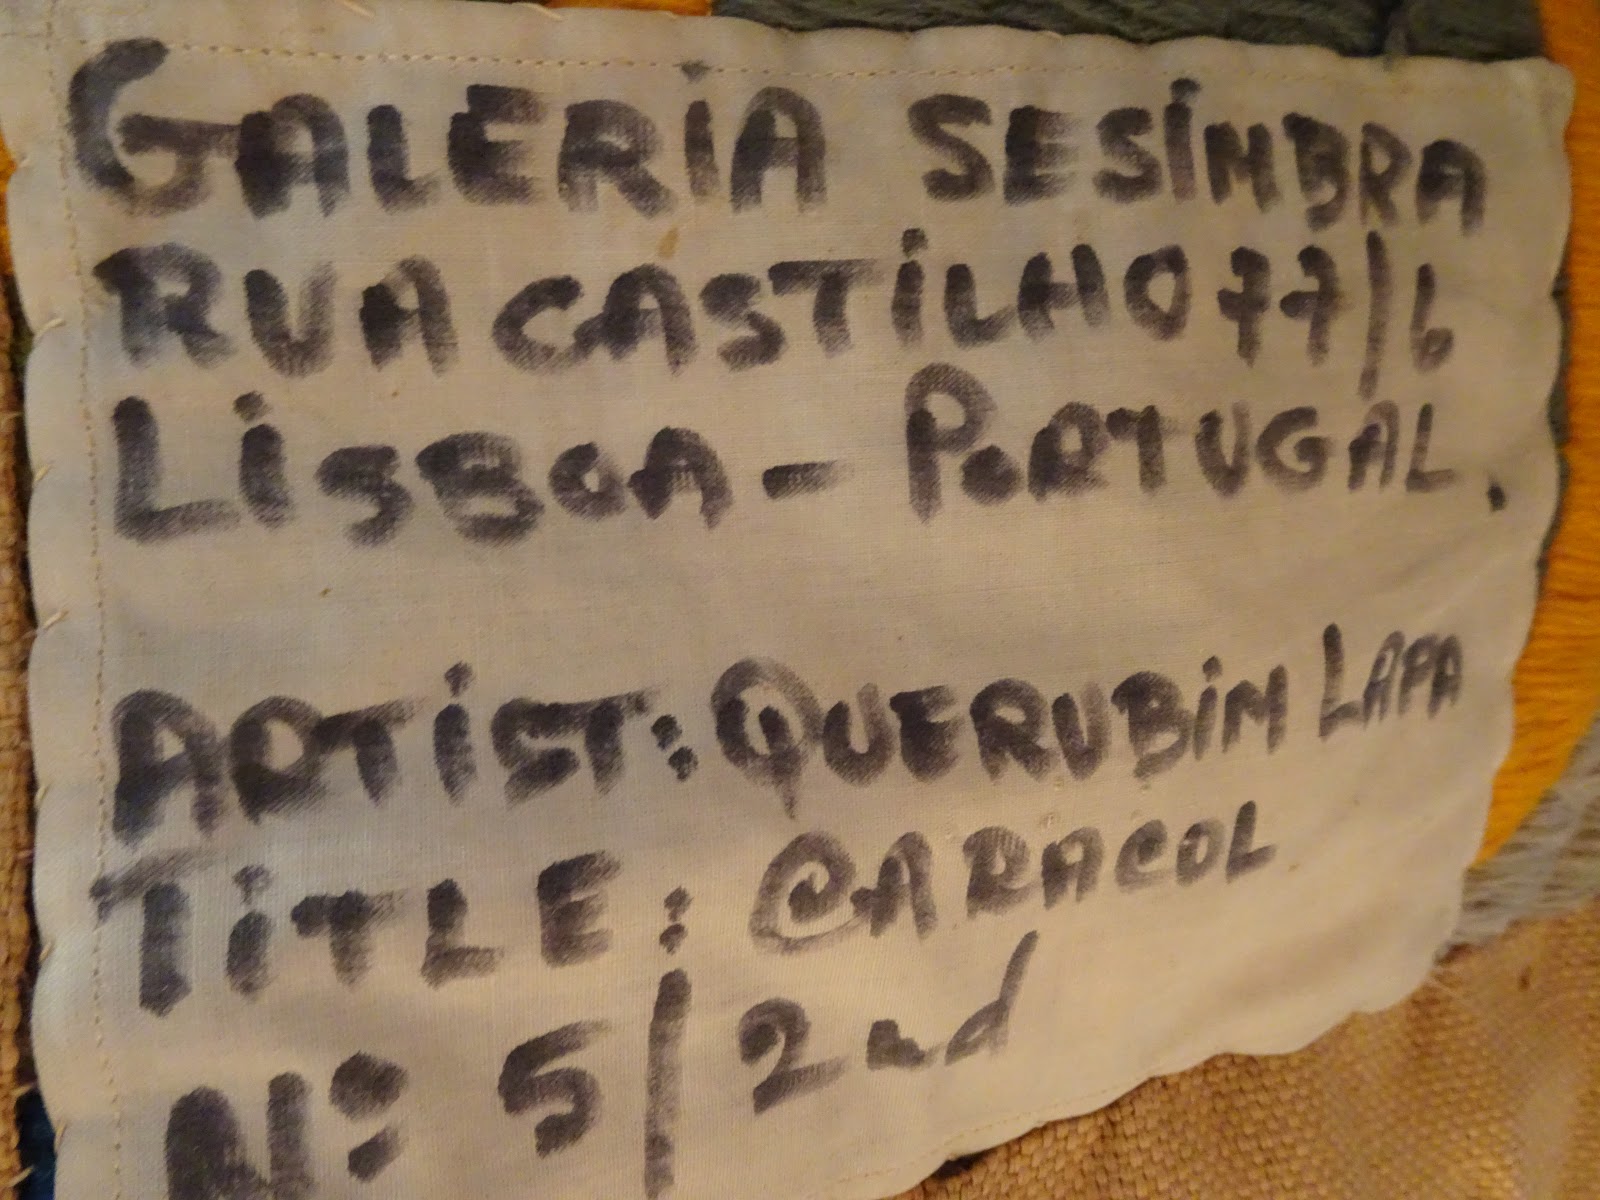 GALERIA SESIMBRA
RUA CASTILHO 77/6
LISBOA - PORTUGAL.
ARTIST: QUERUBIM LAPA
TITLE: CARACOL
Nº 5/2nd